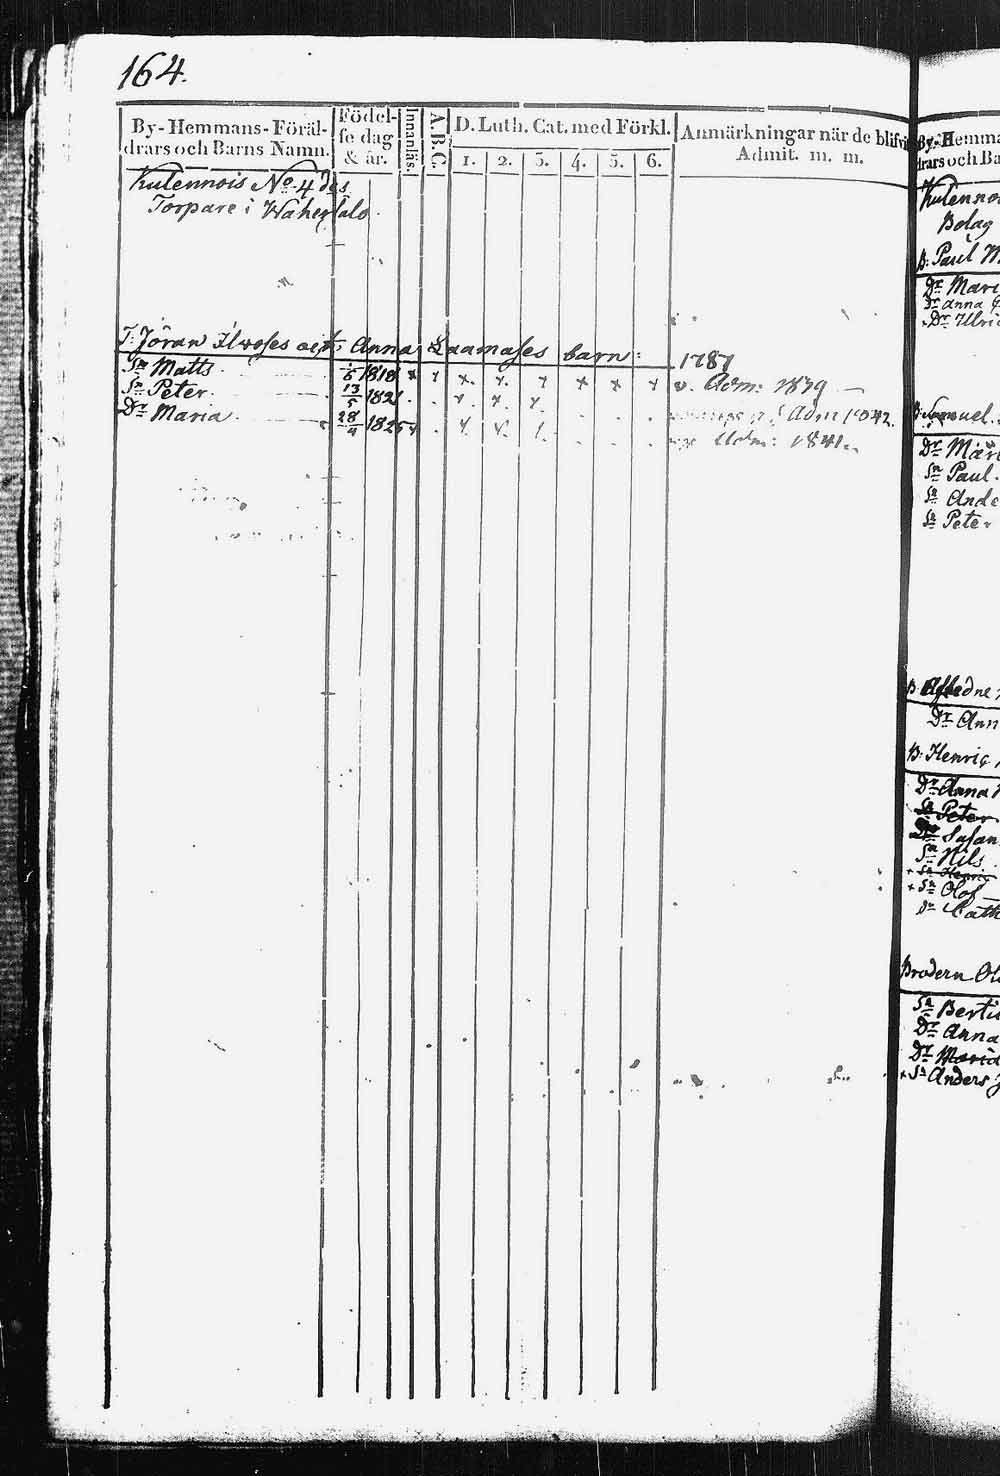 164.
By-Hemmans-Föräl-
drars och Barns Namn.
Födel-
se dag
& år.
Innanläs.
A.B.C.
D. Luth. Cat. med Förkl.
1. 2. 3. 4. 5. 6.
Anmärkningar när de blifvit
Admit. m. m.
Kulennois No. 4 des
Torpare i Wahersalo.
T: Jöran Ilwoses och Anna Laamases barn: 1787
Sn Matts 1/6 1818 x x x x x x x x v. Adm: 1839
Sn Peter 13/5 1821 x x x Adm 1842.
Dr Maria 28/4 1825 x x x Adm: 1841.
By-Hemma
drars och Ba
Kulenno
Bolag
B: Paul
Dr Mari
Dr Anna
Dr Ulric
B: Samuel.
Dr Mar
Sn Paul.
Sn Ande
Sn Peter
B: Afledne
Dr Ann
B: Henric
Dr Anna
Sn Peter
Susan
Sn Nils
Sn Henric
+ Sn Olof
Dr Cath
Brodern Ol
Sn Berti
Dr Anna
Dr Maria
+ Sn Anders